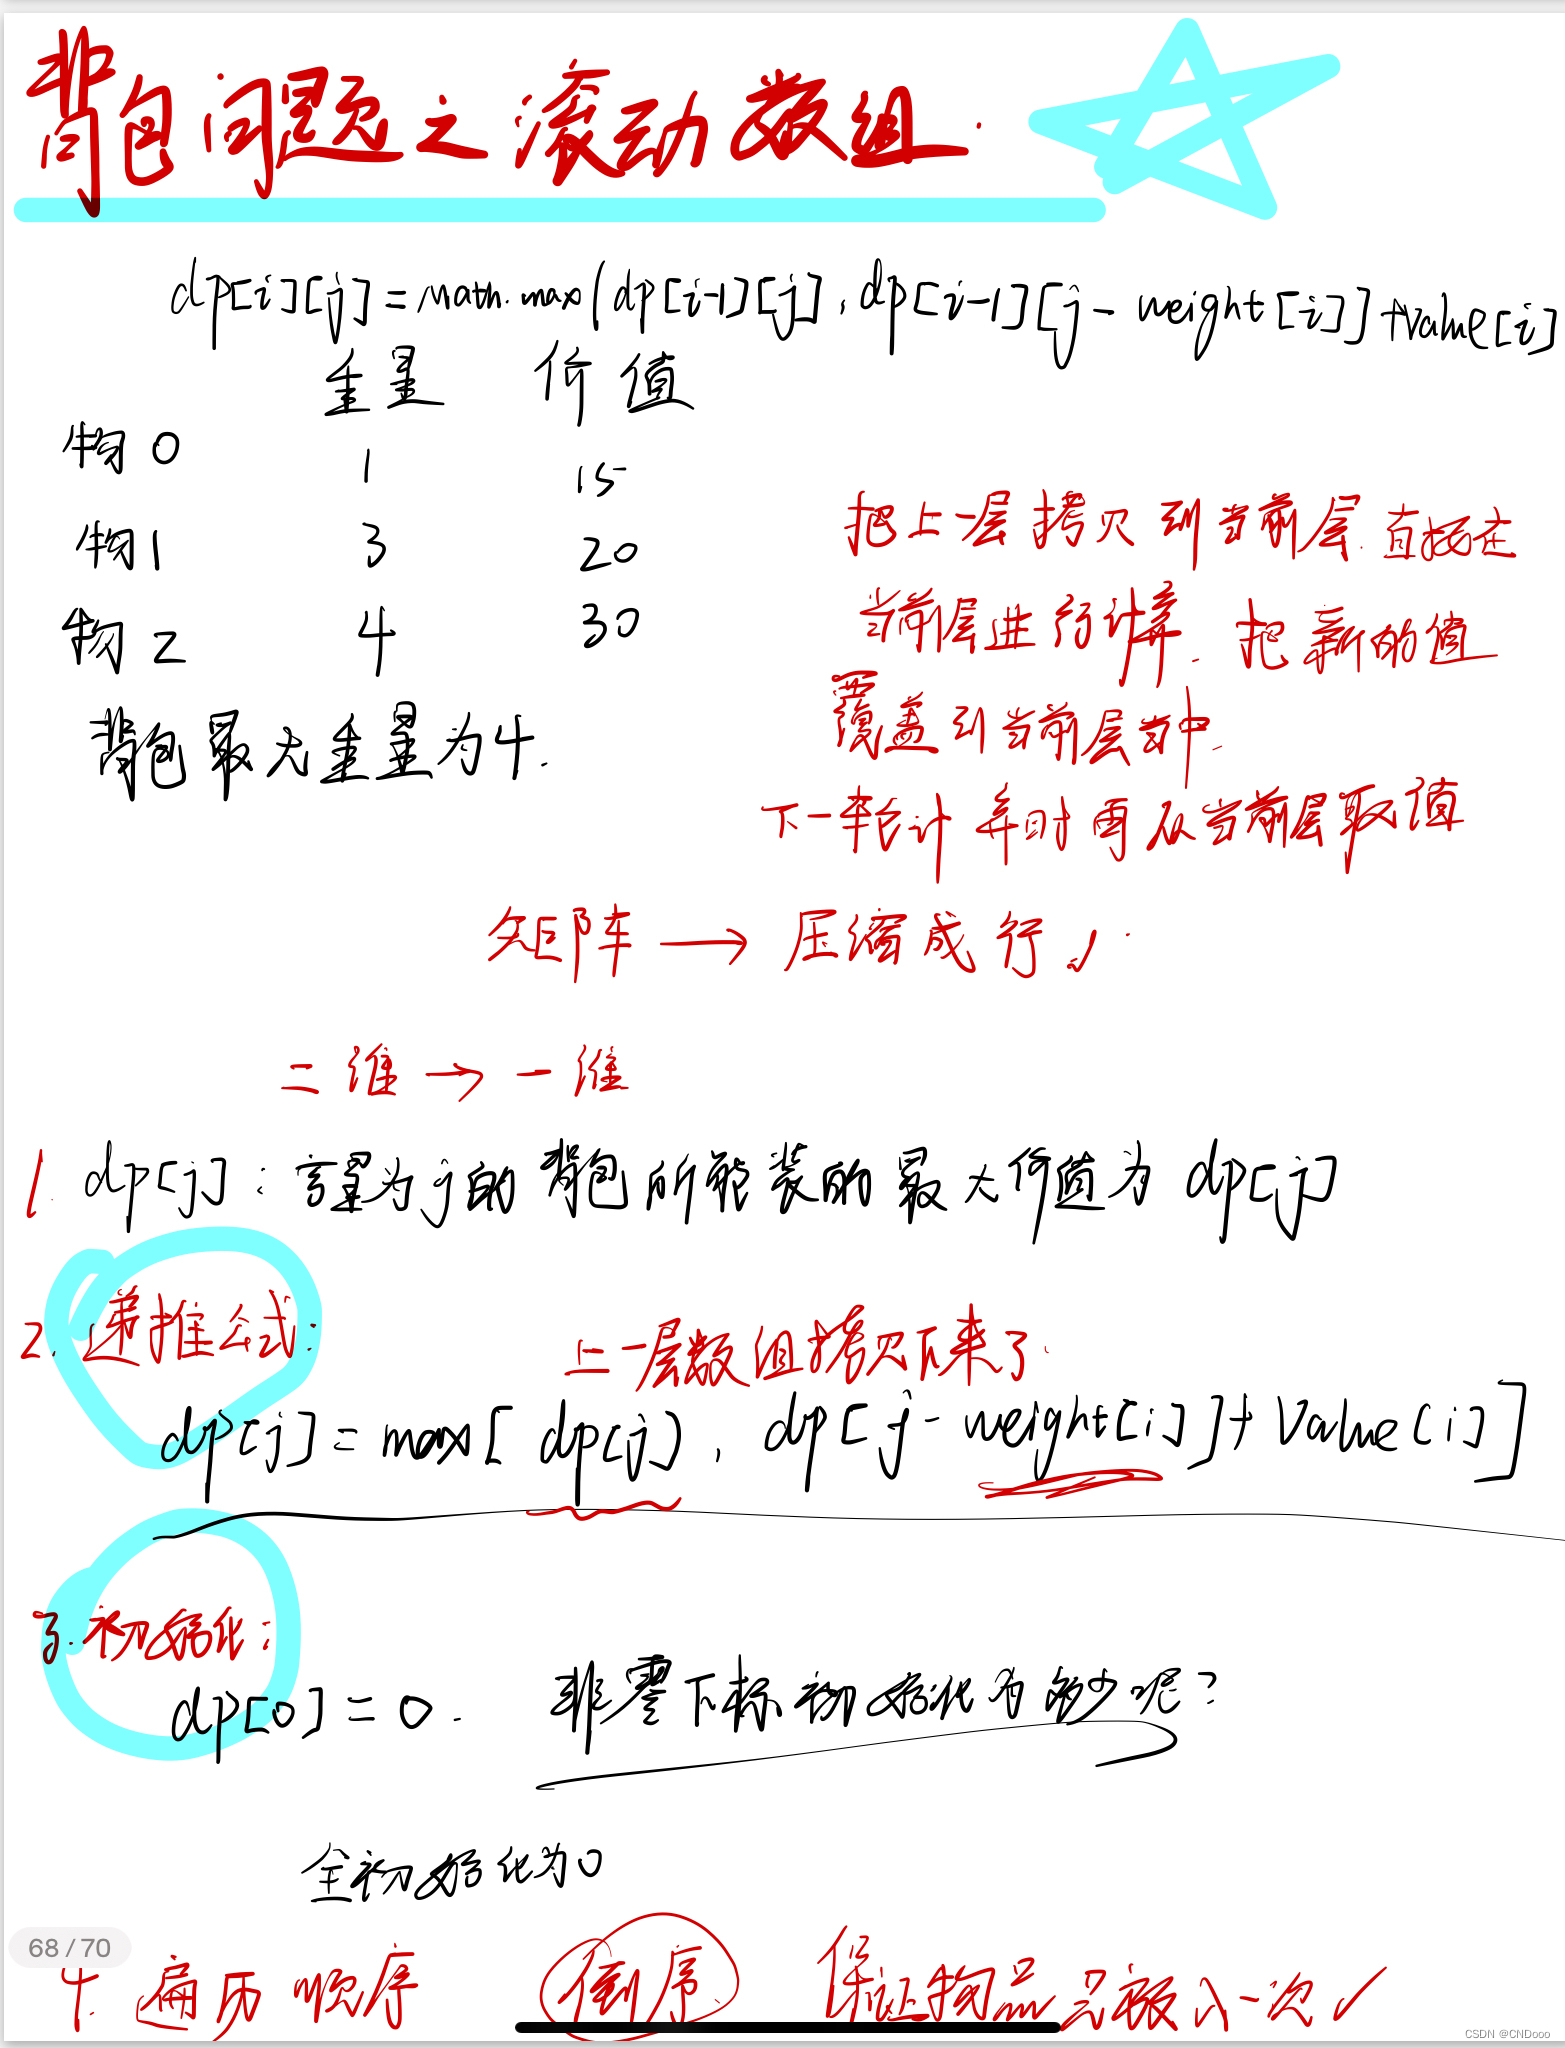 背包问题之滚动数组.
dp[i][j]=math.max(dp[i-1][j],dp[i-1][j-weight[i]]+value[i]
重量 价值
物0 1 15
物1 3 20
物2 4 30
背包最大重量为4.
把上一层拷贝到当前层.直接在
当前层进行计算.把新的值
覆盖到当前层当中.
下一轮计算时再从当前层取值
矩阵→压缩成行√.
二维→一维
1. dp[j]:容量为j的背包所能装的最大价值为dp[j]
2.递推公式:
上一层数组拷贝下来了.
dp[j]=max[dp[j],dp[j-weight[i]]+Value[i]]
3.初始化:
dp[0]=0. 非零下标初始化为多少呢?
全初始化为0
68/70
4.遍历顺序 倒序 保证物品只被放入一次✓
CSDN @CNDooo